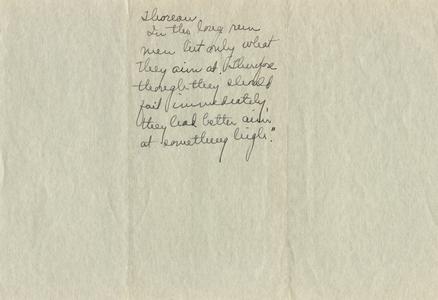 Thoreau.
In the long run
men hit only what
they aim at. Therefore
though they should
fail immediately,
they had better aim
at something high."